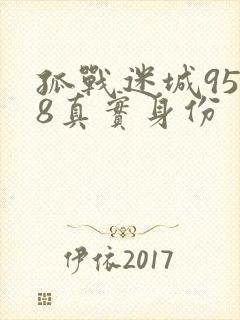 孤戰迷城95
8真實身份
伊依2017